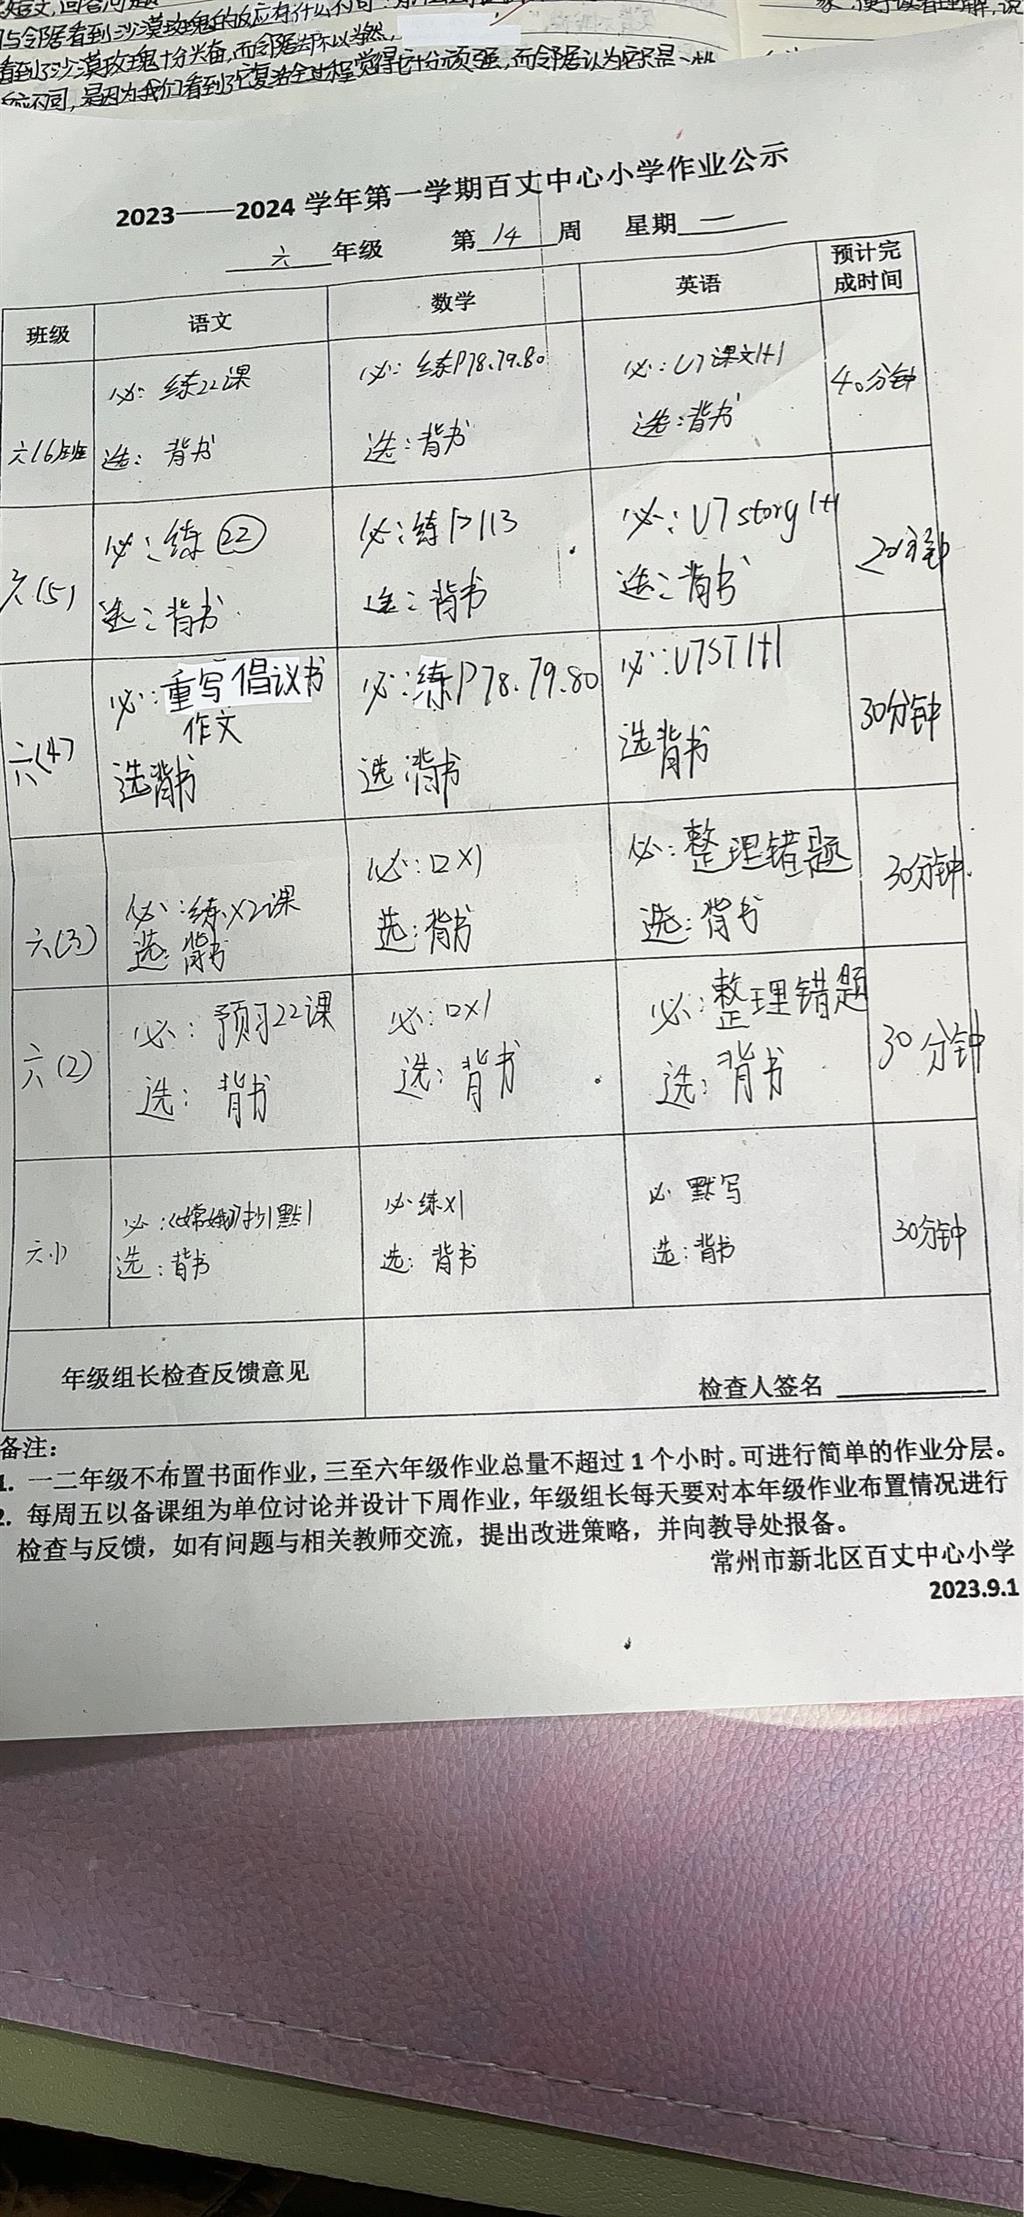 与邻居看到沙漠玫瑰的反应有什么不同
看到了沙漠玫瑰十分兴奋,而邻居却不以为然.
反应不同,是因为我们看到了它复活全过程觉得它十分顽强,而邻居认为它只是一
2023——2024 学年第一学期百丈中心小学作业公示
六 年级 第 14 周 星期 二
班级 语文 数学 英语 预计完成时间
六(6)班 必: 练22课 必: 练P78.79.80 必: U7课文1+1 40分钟
选: 背书 选: 背书 选: 背书
六(5) 必: 练㉒ 必: 练P113 必: U7 story 1+1 20分钟
选: 背书 选: 背书 选: 背书
六(4) 必: 重写倡议书 必: 练P78.79.80 必: U7ST 1+1 30分钟
作文
选背书 选背书 选背书
六(3) 必: 练习22课 必: 口×1 必: 整理错题 30分钟
选: 背书 选: 背书 选: 背书
六(2) 必: 预习22课 必: 口×1 必: 整理错题 30分钟
选: 背书 选: 背书 选: 背书
六(1) 必: 《嫦娥》抄1默1 必 练×1 必 默写 30分钟
选: 背书 选: 背书 选: 背书
年级组长检查反馈意见 检查人签名
备注:
1. 一二年级不布置书面作业,三至六年级作业总量不超过 1 个小时。可进行简单的作业分层。
2. 每周五以备课组为单位讨论并设计下周作业,年级组长每天要对本年级作业布置情况进行
检查与反馈,如有问题与相关教师交流,提出改进策略,并向教导处报备。
常州市新北区百丈中心小学
2023.9.1